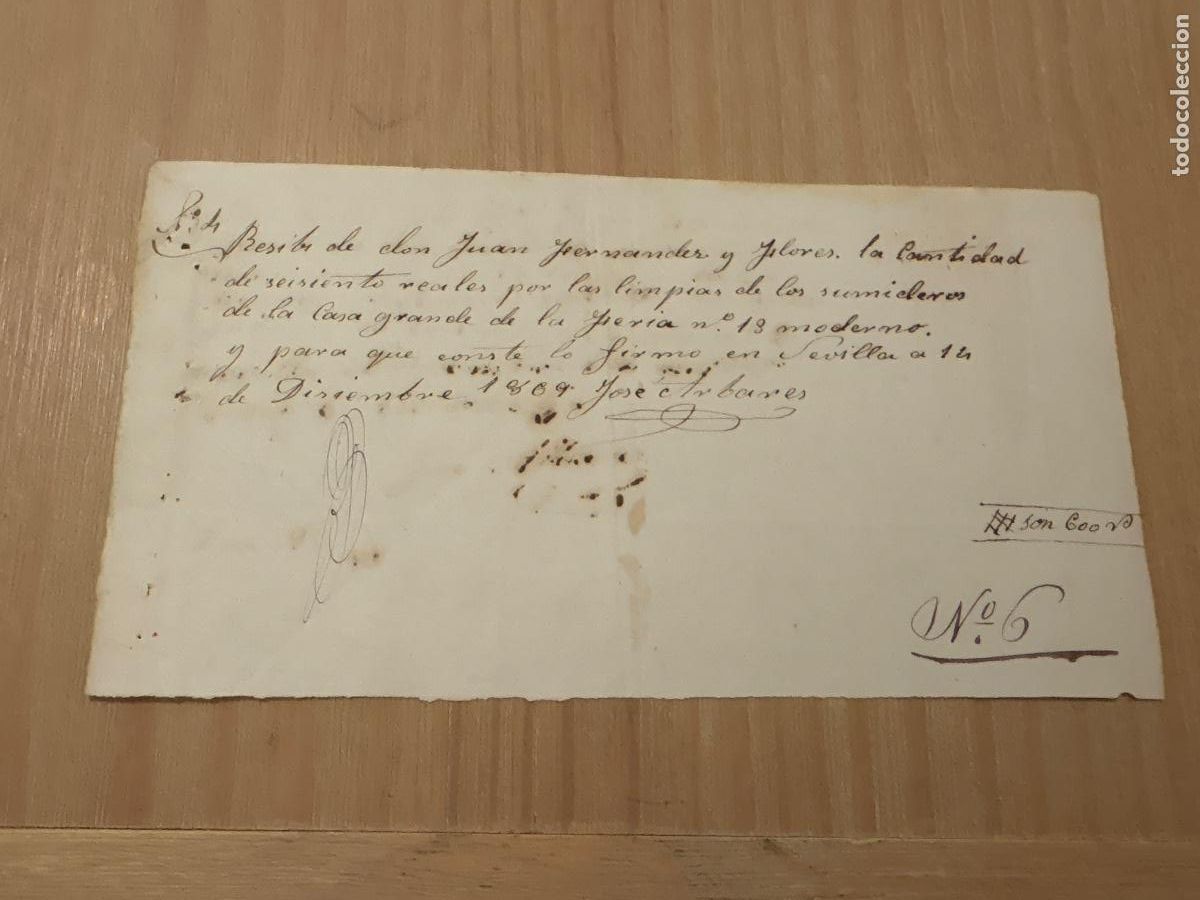 Nº 4
Resibi de don Juan Fernandez y Flores. la Cantidad
de seisiento reales por las limpias de los sumideros
de la Casa grande de la Feria nº 18 moderno.
y para que conste lo firmo en Sevilla a 14
de Disiembre 1869 Jose Arbares
son 600 rs
Nº. 6
todocoleccion